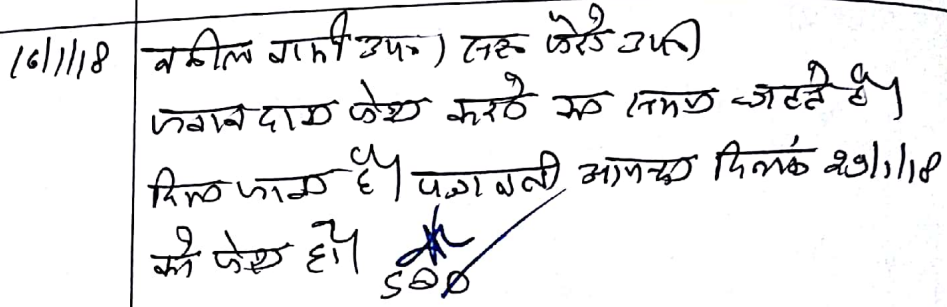 16/1/18 वकील वादी उप०। तरफ केरडे उप०
जवाब दावा पेश करने का समय चाहते है।
दिया जाता है। पत्रावली आगामी दिनांक 29/1/18
को पेश हो।
SDO